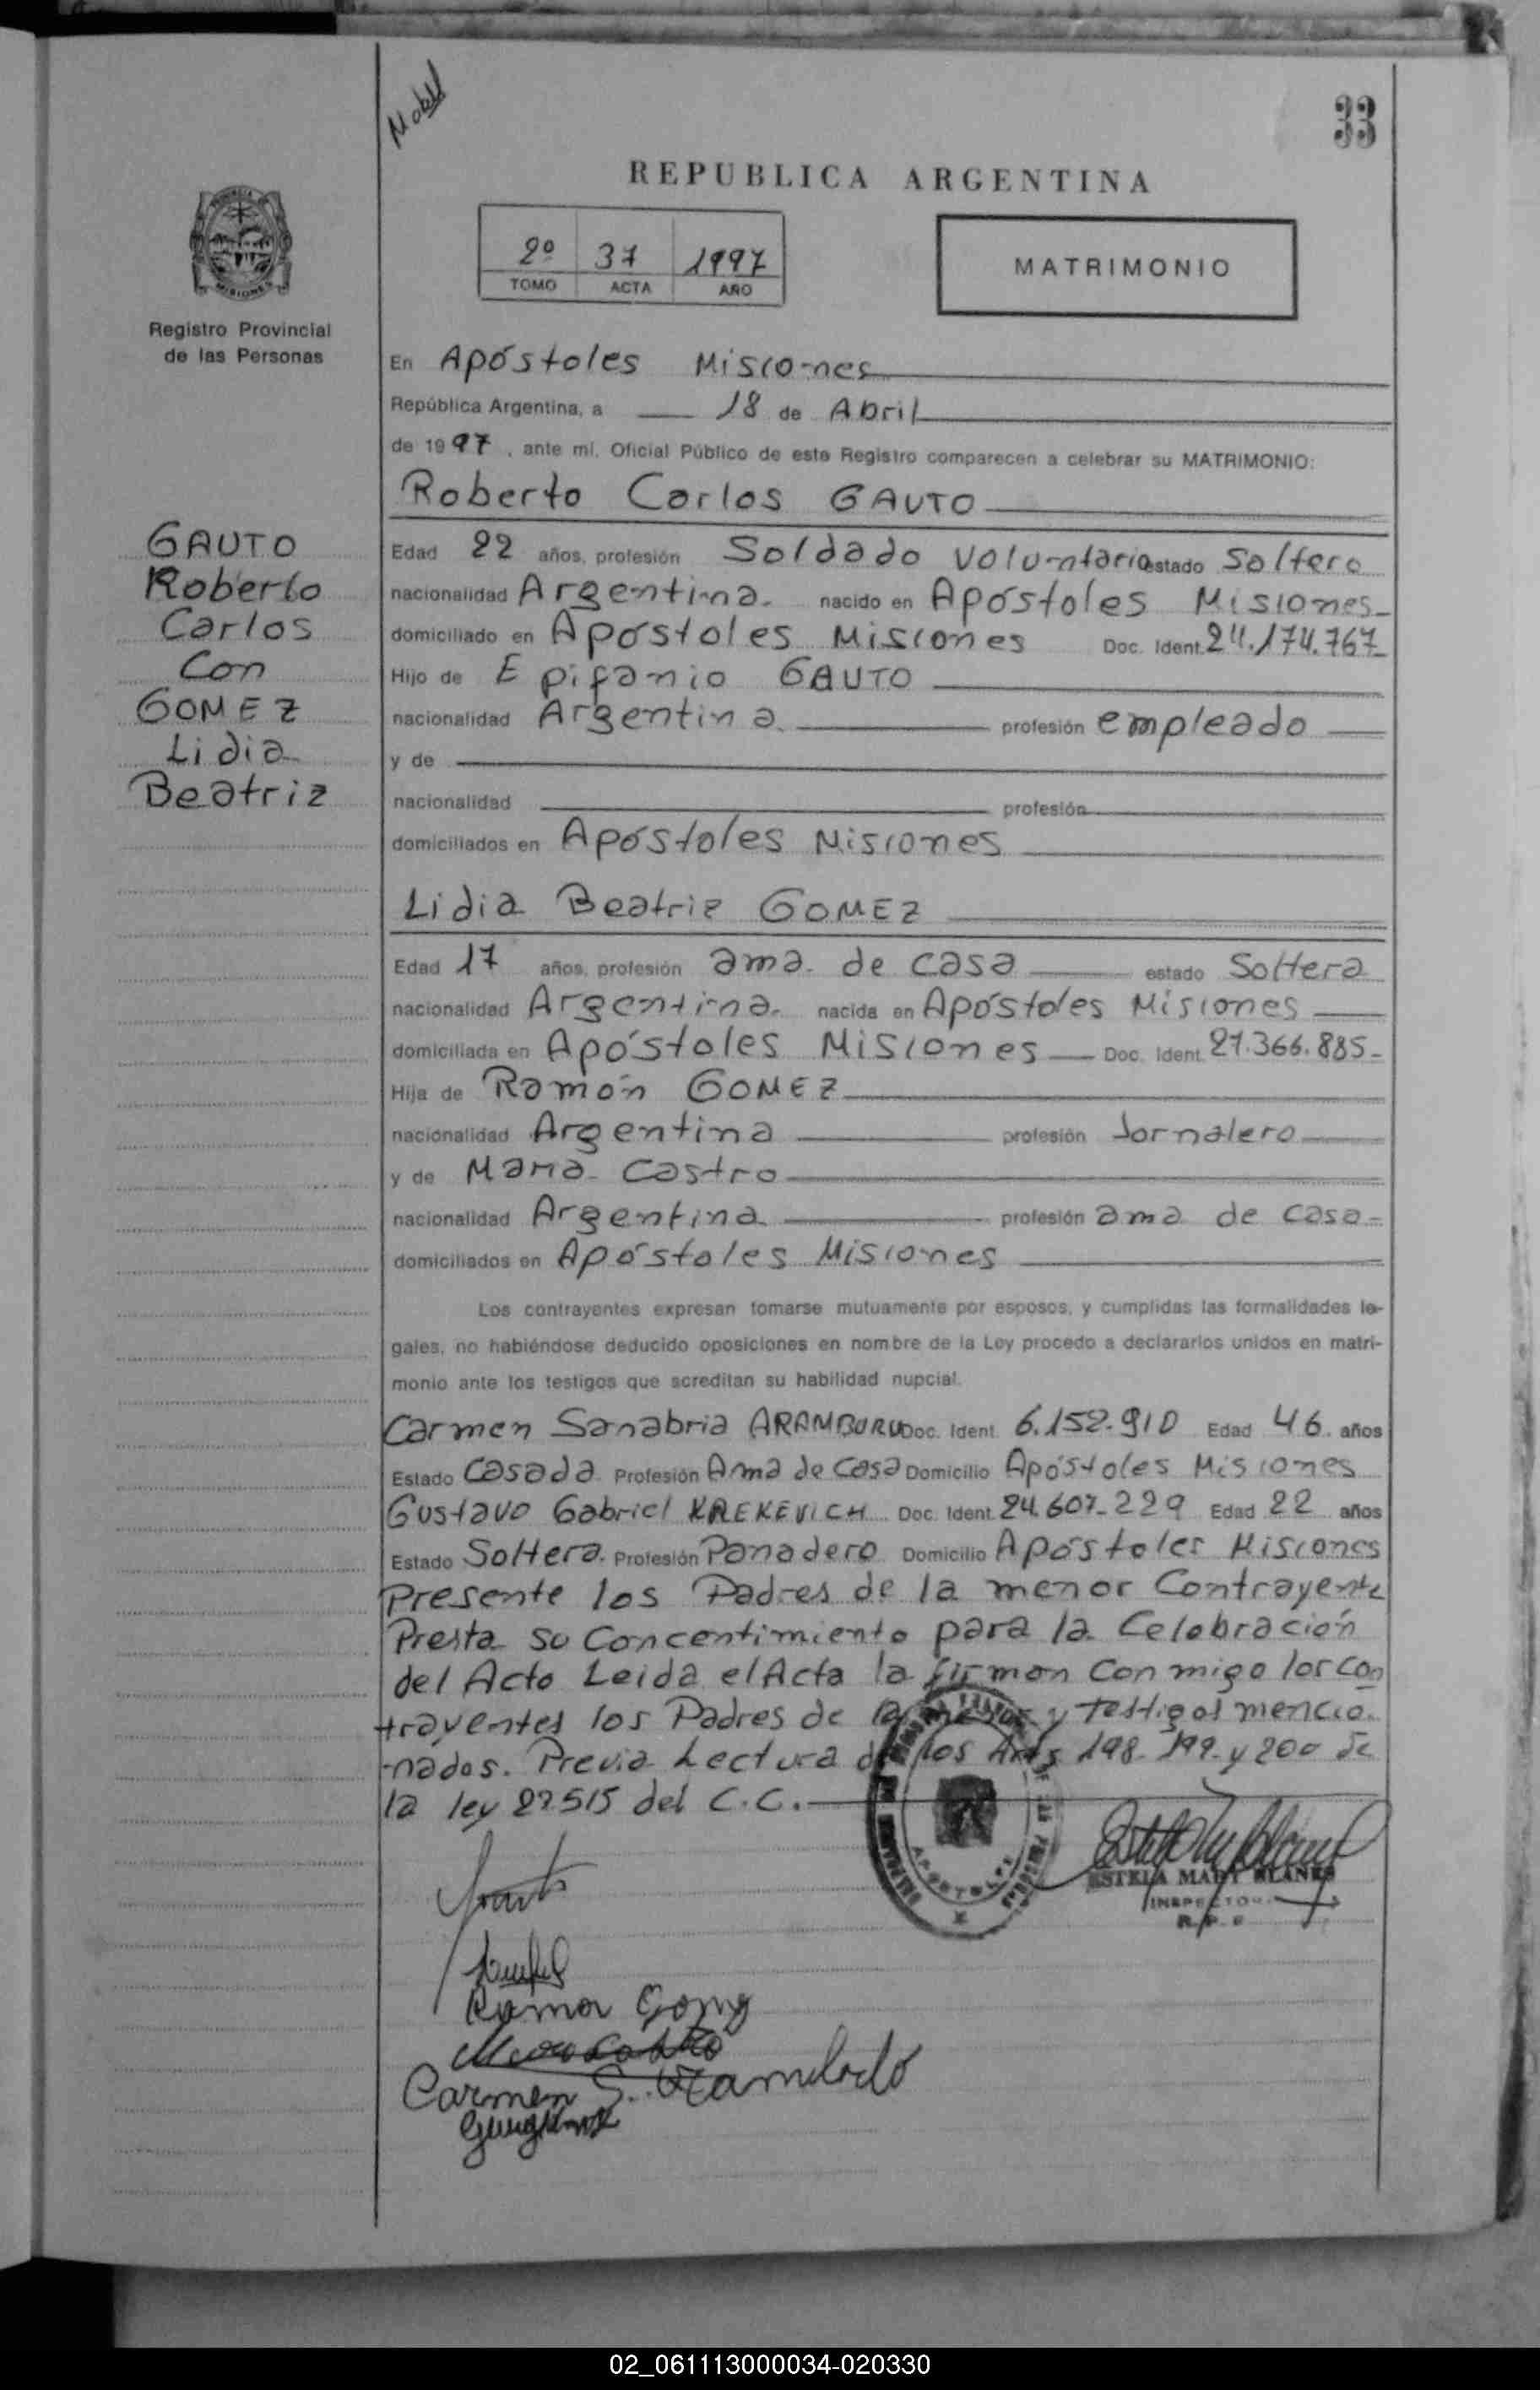 33
REPUBLICA ARGENTINA
2º 37 1997
TOMO ACTA AÑO
MATRIMONIO
MISIONES
Registro Provincial
de las Personas
GAUTO
Roberto
Carlos
Con
GOMEZ
Lidia
Beatriz
En Apóstoles Misiones
República Argentina, a 18 de Abril
de 1997, ante mí, Oficial Público de este Registro comparecen a celebrar su MATRIMONIO:
Roberto Carlos GAUTO
Edad 22 años, profesión Soldado Voluntario estado Soltero
nacionalidad Argentina. nacido en Apóstoles Misiones-
domiciliado en Apóstoles Misiones Doc. Ident. 24.174.767-
Hijo de Epifanio GAUTO
nacionalidad Argentina profesión empleado
y de
nacionalidad profesión
domiciliados en Apóstoles Misiones
Lidia Beatriz GOMEZ
Edad 17 años, profesión ama de casa estado Soltera
nacionalidad Argentina. nacida en Apóstoles Misiones
domiciliada en Apóstoles Misiones Doc. Ident. 27.366.885-
Hija de Ramón GOMEZ
nacionalidad Argentina profesión Jornalero
y de Maria Castro
nacionalidad Argentina profesión ama de casa-
domiciliados en Apóstoles Misiones
Los contrayentes expresan tomarse mutuamente por esposos, y cumplidas las formalidades le-
gales, no habiéndose deducido oposiciones en nombre de la Ley procedo a declararlos unidos en matri-
monio ante los testigos que acreditan su habilidad nupcial.
Carmen Sanabria ARAMBURU Doc. Ident. 6.152.910 Edad 46 años
Estado Casada Profesión Ama de Casa Domicilio Apóstoles Misiones
Gustavo Gabriel KREKEVICH Doc. Ident. 24.607.229 Edad 22 años
Estado Soltero. Profesión Panadero Domicilio Apóstoles Misiones
Presente los Padres de la menor Contrayente
Presta su Concentimiento para la Celebración
del Acto Leida el Acta la firman conmigo los con
trayentes los Padres de la menor y testigos mencio-
nados. Previa Lectura de los Arts 198-199-y 200 de
la ley 23515 del C.C.
APOSTOLES
ESTELA MARY BLANES
INSPECTORA
R.P.P
Ramon Gomez
Carmen S.
02_061113000034-020330